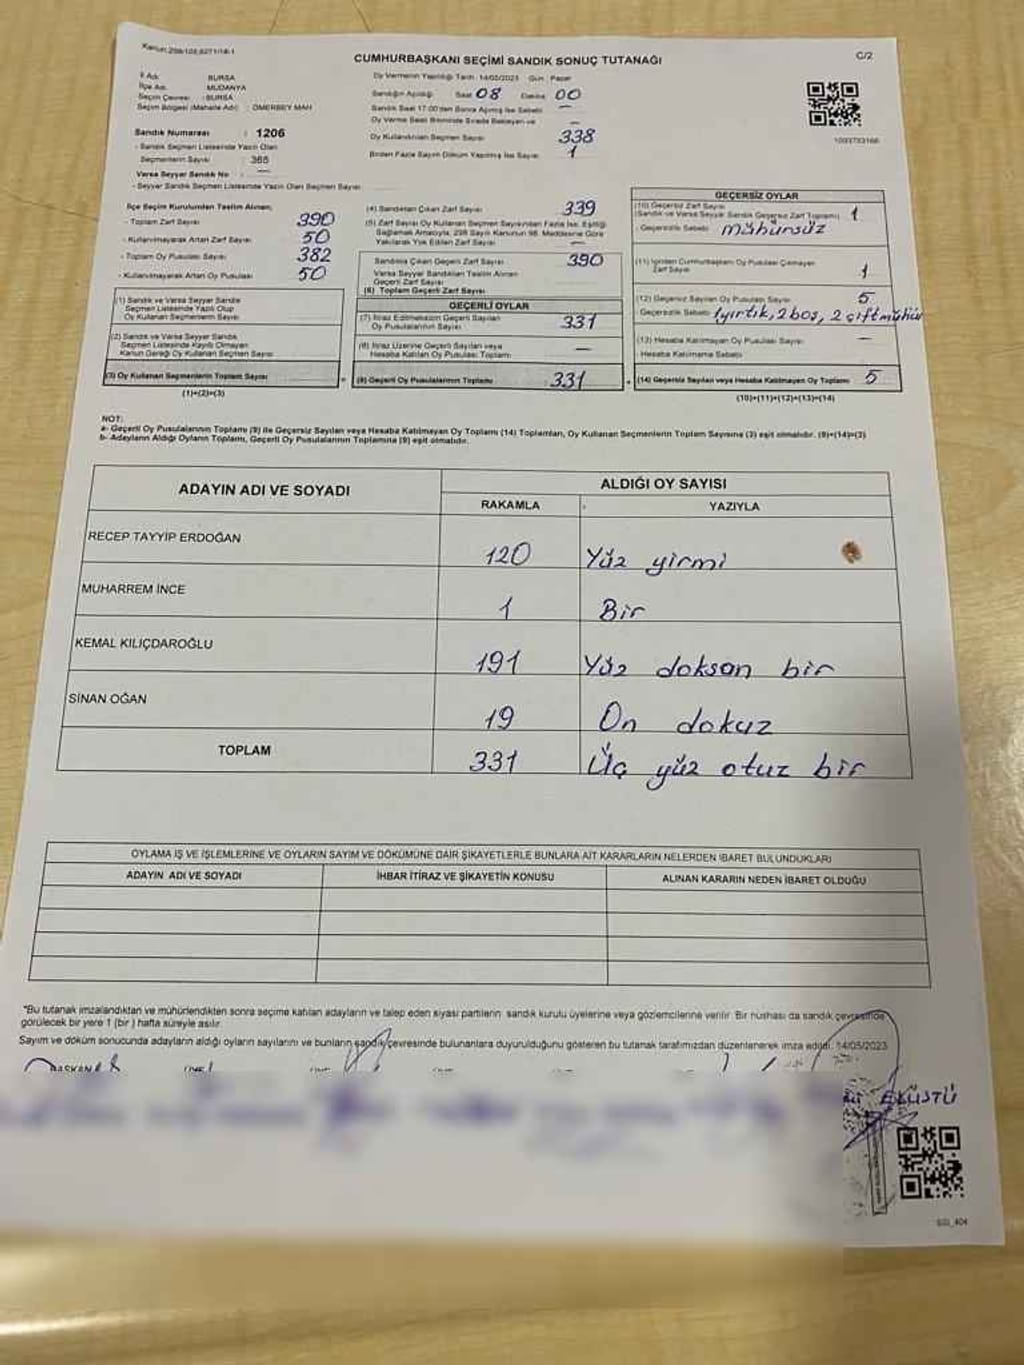 Kanun:298/102,6271/18-1
C/2
CUMHURBAŞKANI SEÇİMİ SANDIK SONUÇ TUTANAĞI
İl Adı BURSA
İlçe Adı MUDANYA
Seçim Çevresi : BURSA
Seçim Bölgesi (Mahalle Adı) : ÖMERBEY MAH
Sandık Numarası : 1206
- Sandık Seçmen Listesinde Yazılı Olan
Seçmenlerin Sayısı : 365
Varsa Seyyar Sandık No : —
- Seyyar Sandık Seçmen Listesinde Yazılı Olan Seçmen Sayısı
Oy Vermenin Yapıldığı Tarih : 14/05/2023 Gün : Pazar
Sandığın Açıldığı Saat 08 Dakika 00
Sandık Saat 17.00'den Sonra Açılmış İse Sebebi —
Oy Verme Saati Bitiminde Sırada Bekleyen ve —
Oy Kullandırılan Seçmen Sayısı 338
Birden Fazla Sayım Döküm Yapılmış İse Sayısı 1
İlçe Seçim Kurulundan Teslim Alınan;
- Toplam Zarf Sayısı 390
- Kullanılmayarak Artan Zarf Sayısı 50
- Toplam Oy Pusulası Sayısı 382
- Kullanılmayarak Artan Oy Pusulası 50
(1) Sandık ve Varsa Seyyar Sandık
Seçmen Listesinde Yazılı Olup
Oy Kullanan Seçmenlerin Sayısı
(2) Sandık ve Varsa Seyyar Sandık
Seçmen Listesinde Kayıtlı Olmayan
Kanun Gereği Oy Kullanan Seçmen Sayısı
(3) Oy Kullanan Seçmenlerin Toplam Sayısı
(1)+(2)=(3)
(4) Sandıktan Çıkan Zarf Sayısı 339
(5) Zarf Sayısı Oy Kullanan Seçmen Sayısından Fazla İse, Eşitliği
Sağlamak Amacıyla, 298 Sayılı Kanunun 98. Maddesine Göre
Yakılarak Yok Edilen Zarf Sayısı —
Sandıkta Çıkan Geçerli Zarf Sayısı 390
Varsa Seyyar Sandıktan Teslim Alınan
Geçerli Zarf Sayısı
(6) Toplam Geçerli Zarf Sayısı
GEÇERLİ OYLAR
(7) İtiraz Edilmeksizin Geçerli Sayılan
Oy Pusulalarının Sayısı 331
(8) İtiraz Üzerine Geçerli Sayılan veya
Hesaba Katılan Oy Pusulası Toplamı —
(9) Geçerli Oy Pusulalarının Toplamı 331
GEÇERSİZ OYLAR
(10) Geçersiz Zarf Sayısı
(Sandık ve Varsa Seyyar Sandık Geçersiz Zarf Toplamı) 1
- Geçersizlik Sebebi : mühürsüz
(11) İçinden Cumhurbaşkanı Oy Pusulası Çıkmayan
Zarf Sayısı 1
(12) Geçersiz Sayılan Oy Pusulası Sayısı 5
Geçersizlik Sebebi 1yırtık, 2 boş, 2 çift mühür
(13) Hesaba Katılmayan Oy Pusulası Sayısı —
Hesaba Katılmama Sebebi
(14) Geçersiz Sayılan veya Hesaba Katılmayan Oy Toplamı 5
(10)+(11)+(12)+(13)=(14)
NOT:
a- Geçerli Oy Pusulalarının Toplamı (9) ile Geçersiz Sayılan veya Hesaba Katılmayan Oy Toplamı (14) Toplamları, Oy Kullanan Seçmenlerin Toplam Sayısına (3) eşit olmalıdır. (9)+(14)=(3)
b- Adayların Aldığı Oyların Toplamı, Geçerli Oy Pusulalarının Toplamına (9) eşit olmalıdır.
ADAYIN ADI VE SOYADI ALDIĞI OY SAYISI
RAKAMLA YAZIYLA
RECEP TAYYİP ERDOĞAN 120 Yüz yirmi
MUHARREM İNCE 1 Bir
KEMAL KILIÇDAROĞLU 191 Yüz doksan bir
SİNAN OĞAN 19 On dokuz
TOPLAM 331 Üç yüz otuz bir
OYLAMA İŞ VE İŞLEMLERİNE VE OYLARIN SAYIM VE DÖKÜMÜNE DAİR ŞİKAYETLERLE BUNLARA AİT KARARLARIN NELERDEN İBARET BULUNDUKLARI
ADAYIN ADI VE SOYADI İHBAR İTİRAZ VE ŞİKAYETİN KONUSU ALINAN KARARIN NEDEN İBARET OLDUĞU
"Bu tutanak imzalandıktan ve mühürlendikten sonra seçime katılan adayların ve talep eden siyasi partilerin sandık kurulu üyelerine veya gözlemcilerine verilir. Bir nüshası da sandık çevresinde
görülecek bir yere 1 (bir ) hafta süreyle asılır.
Sayım ve döküm sonucunda adayların aldığı oyların sayılarını ve bunların sandık çevresinde bulunanlara duyurulduğunu gösteren bu tutanak tarafımızdan düzenlenerek imza edildi. 14/05/2023
BAŞKAN